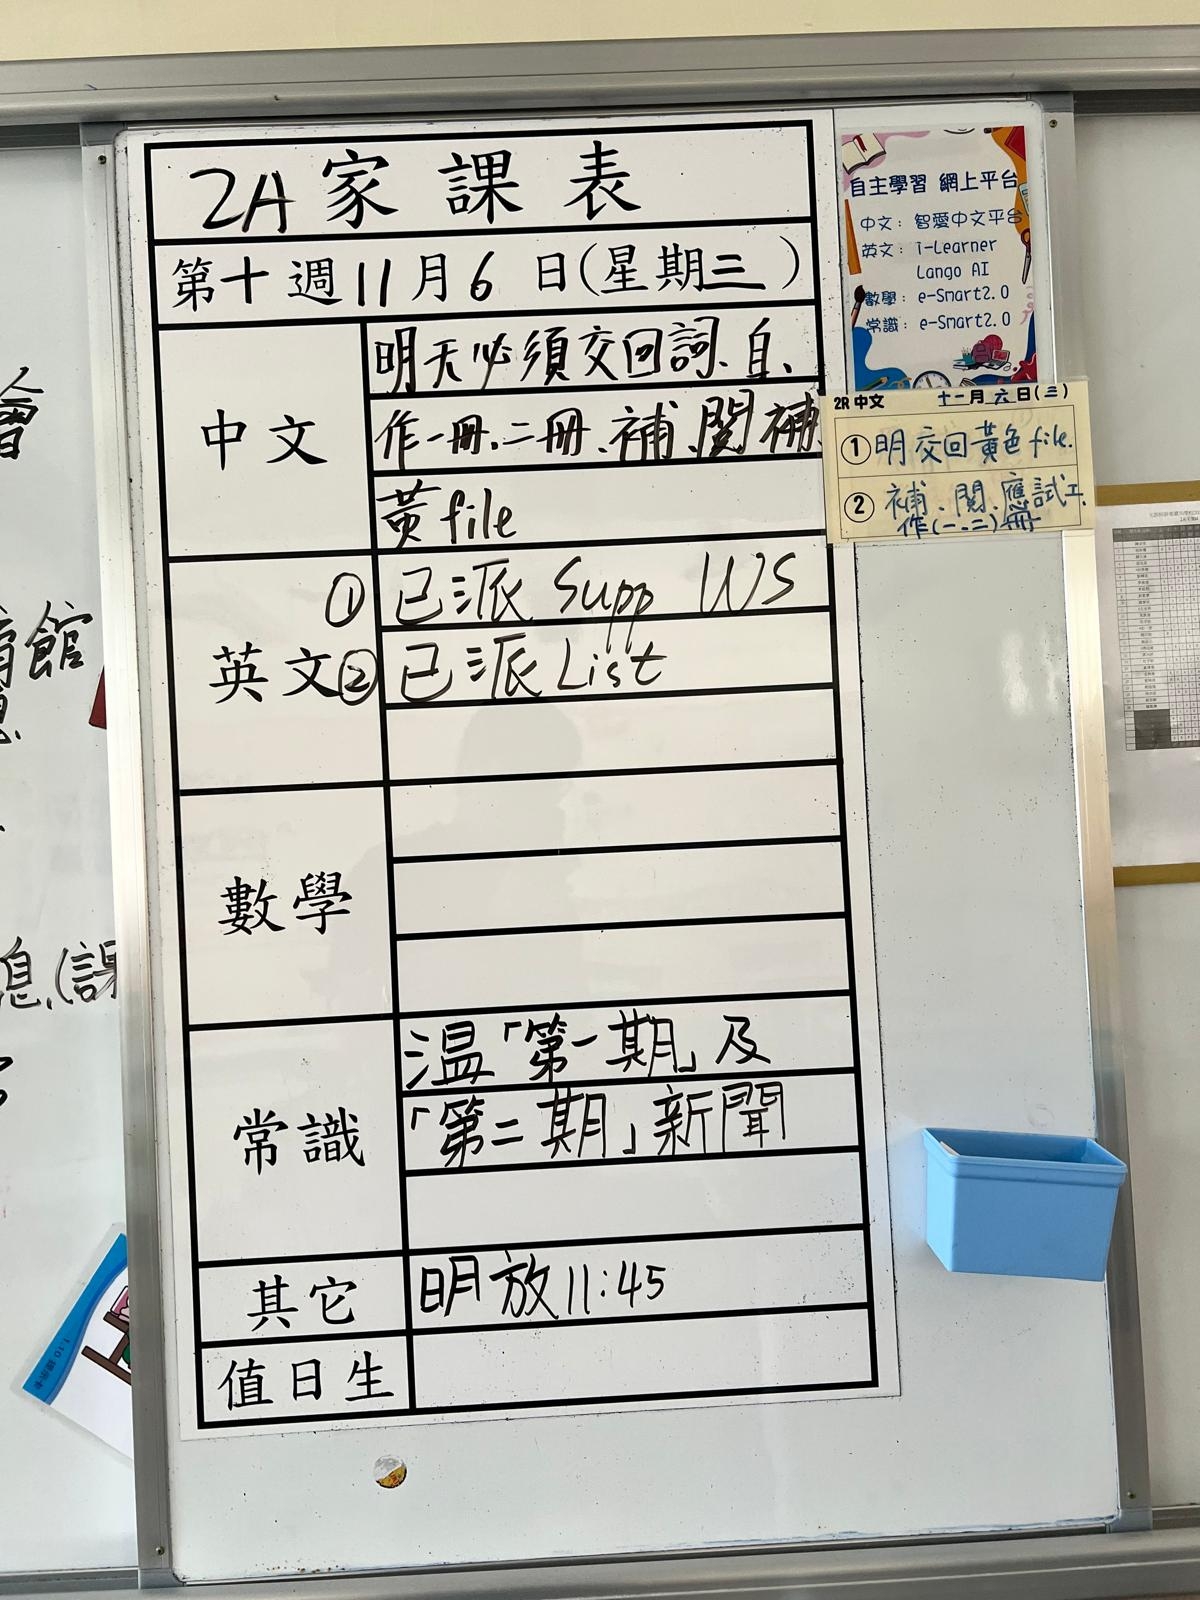 2A 家課表
第十週11月6日(星期三)
中文
明天必須交回詞、自、
作一冊、二冊、補、閱補
黃file
英文
① 已派 Supp WS
② 已派 List
數學
常識
溫「第一期」及
「第二期」新聞
其它
明放 11:45
值日生
自主學習 網上平台
中文：智愛中文平台
英文：i-Learner
Lango AI
數學：e-Smart2.0
常識：e-Smart2.0
2R 中文 十一月六日(三)
① 明交回黃色file.
② 補、閱、應試工、
作(一、二)冊
會
館
息、(課